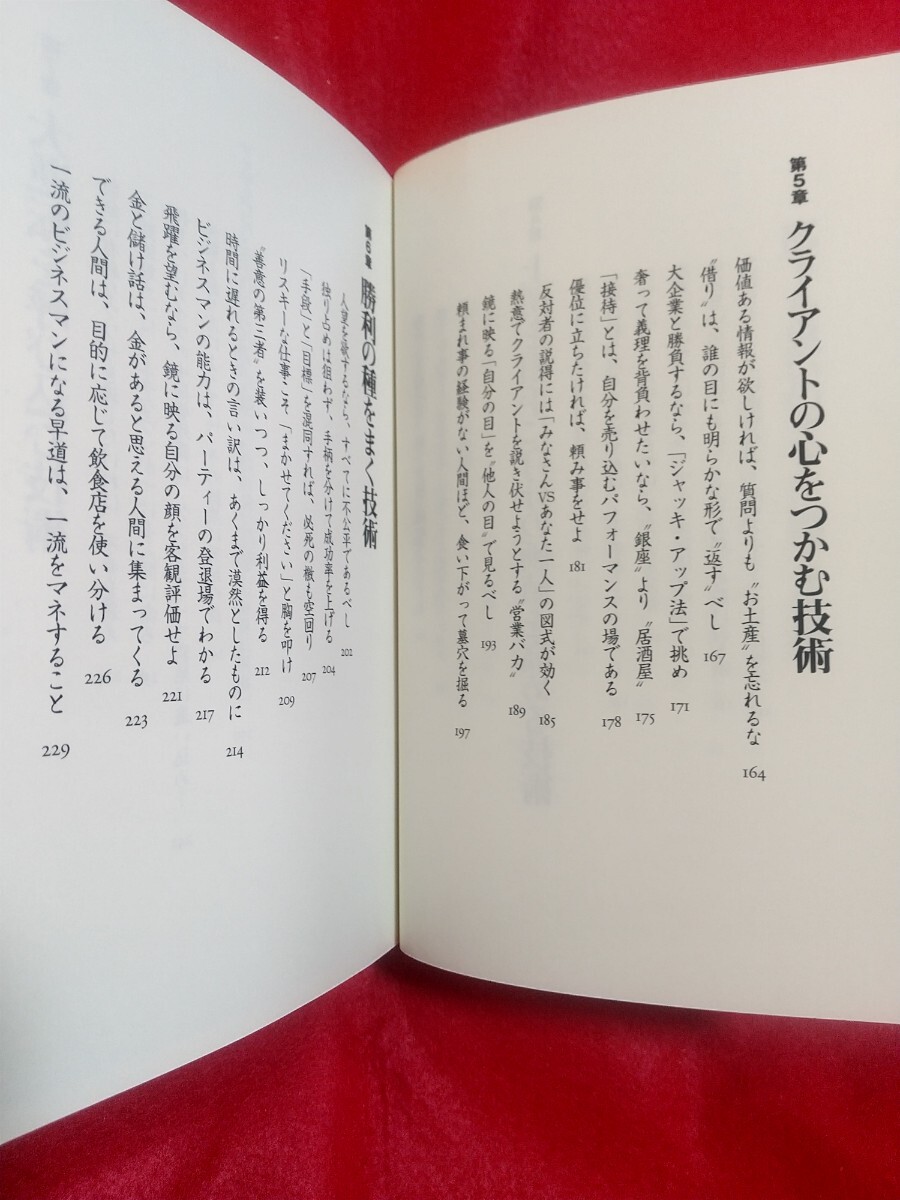 第5章 クライアントの心をつかむ技術
価値ある情報が欲しければ、質問よりも〝お土産〟を忘れるな 164
〝借り〟は、誰の目にも明らかな形で〝返す〟べし 167
大企業と勝負するなら、「ジャッキ・アップ法」で挑め 171
奢って義理を背負わせたいなら、〝銀座〟より〝居酒屋〟 175
「接待」とは、自分を売り込むパフォーマンスの場である 178
優位に立ちたければ、頼み事をせよ 181
反対者の説得には「みなさんVSあなた一人」の図式が効く 185
熱意でクライアントを説き伏せようとする〝営業バカ〟 189
鏡に映る「自分の目」を〝他人の目〟で見るべし 193
頼まれ事の経験がない人間ほど、食い下がって墓穴を掘る 197
第6章 勝利の種をまく技術
人望を欲するなら、すべてに不公平であるべし 202
独り占めは狙わず、手柄を分けて成功率を上げる 204
「手段」と「目標」を混同すれば、必死の檄も空回り 207
リスキーな仕事こそ「まかせてください」と胸を叩け 209
〝善意の第三者〟を装いつつ、しっかり利益を得る 212
時間に遅れるときの言い訳は、あくまで漠然としたものに 214
ビジネスマンの能力は、パーティーの登退場でわかる 217
飛躍を望むなら、鏡に映る自分の顔を客観評価せよ 221
金と儲け話は、金があると思える人間に集まってくる 223
できる人間は、目的に応じて飲食店を使い分ける 226
一流のビジネスマンになる早道は、一流をマネすること 229